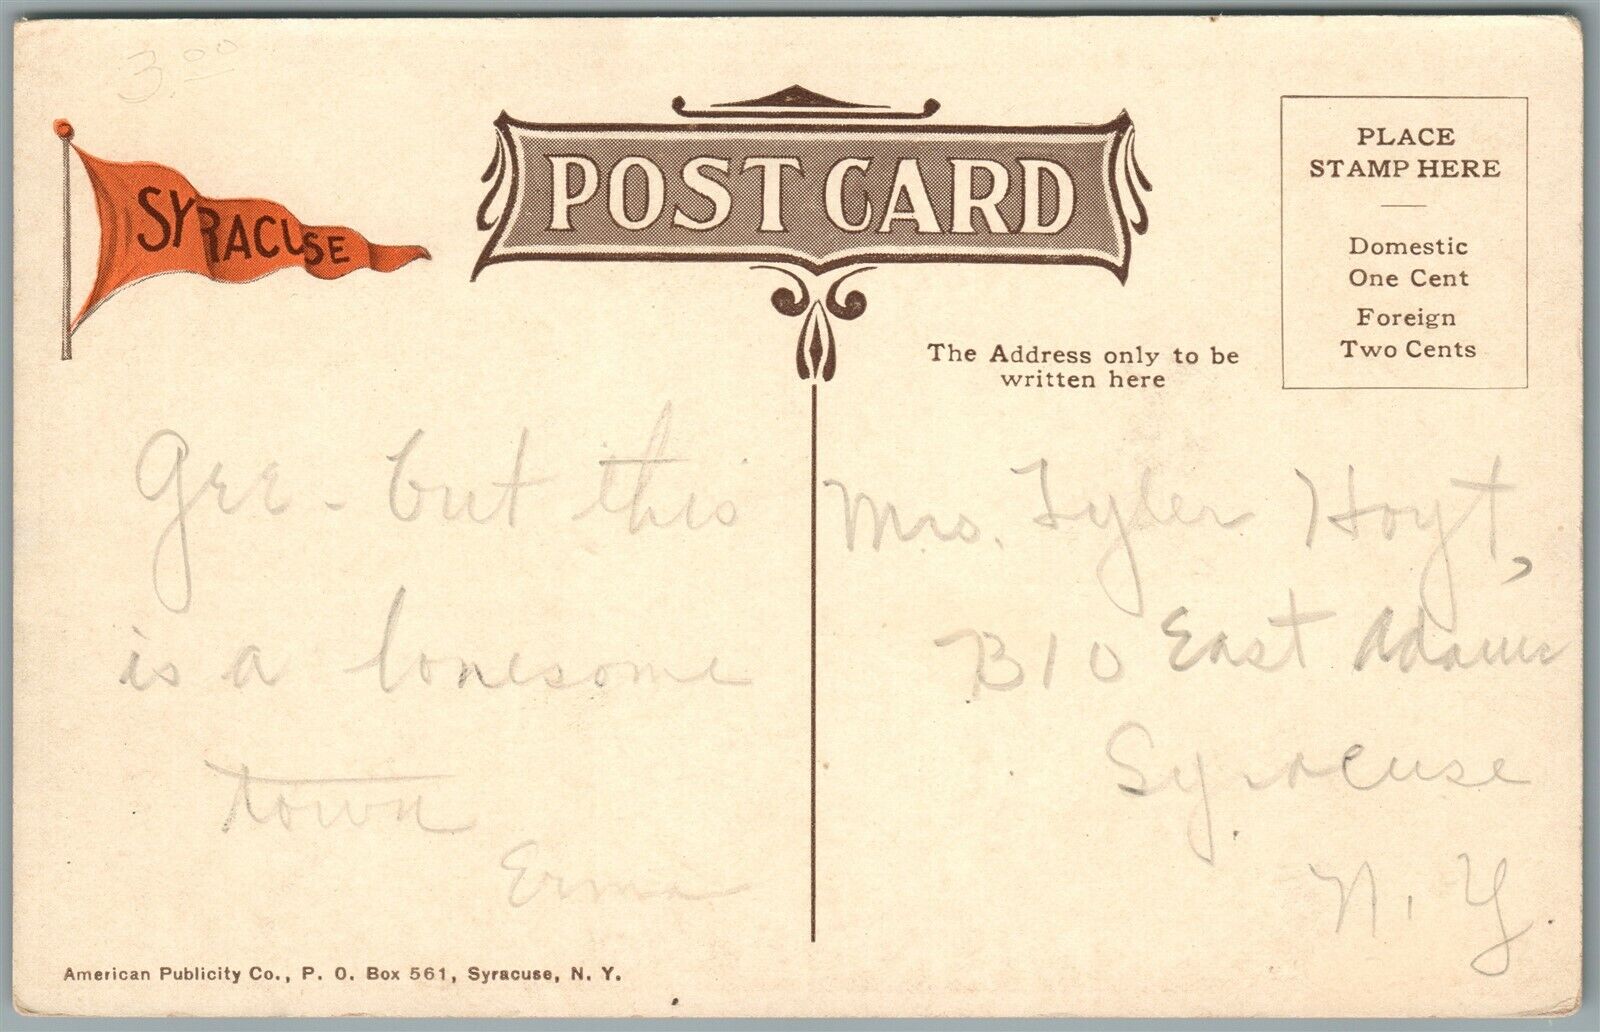 3.00
SYRACUSE
POST CARD
PLACE
STAMP HERE
Domestic
One Cent
Foreign
Two Cents
The Address only to be
written here
Gee - but this
is a lonesome
town
Erma
Mrs. Tyler Hoyt,
310 East Adams
Syracuse
N. Y.
American Publicity Co., P. O. Box 561, Syracuse, N. Y.